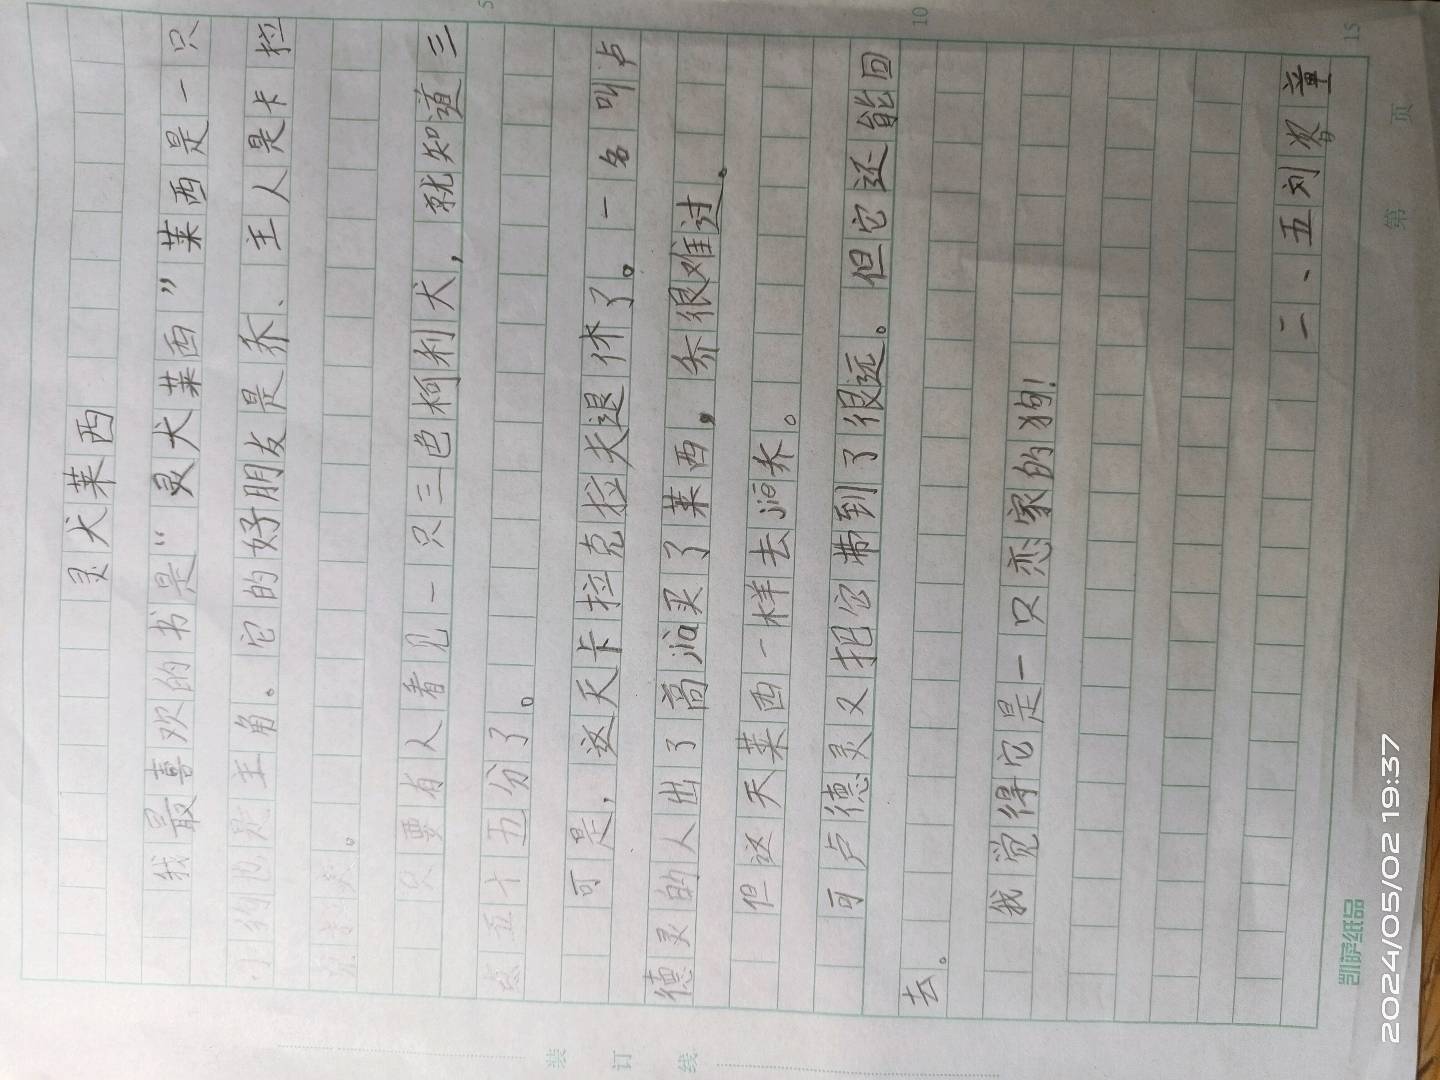 灵犬莱西
我最喜欢的书是“灵犬莱西”，莱西是一只
小狗也是主角。它的好朋友是乔、主人是卡拉
克拉夫。
只要有人看见一只三色柯利犬，就知道三
点五十五分了。
可是，这天卡拉克拉夫退休了。一名叫卢
德灵的人出了高jià买了莱西，乔很难过。
但这天莱西一样去jiē乔。
可卢德灵又把它带到了很远。但它还能回
去。
我觉得它是一只恋家的狗！
二、五刘睿章
5
10
15
第 页
装 订 线
凯萨纸品
2024/05/02 19:37